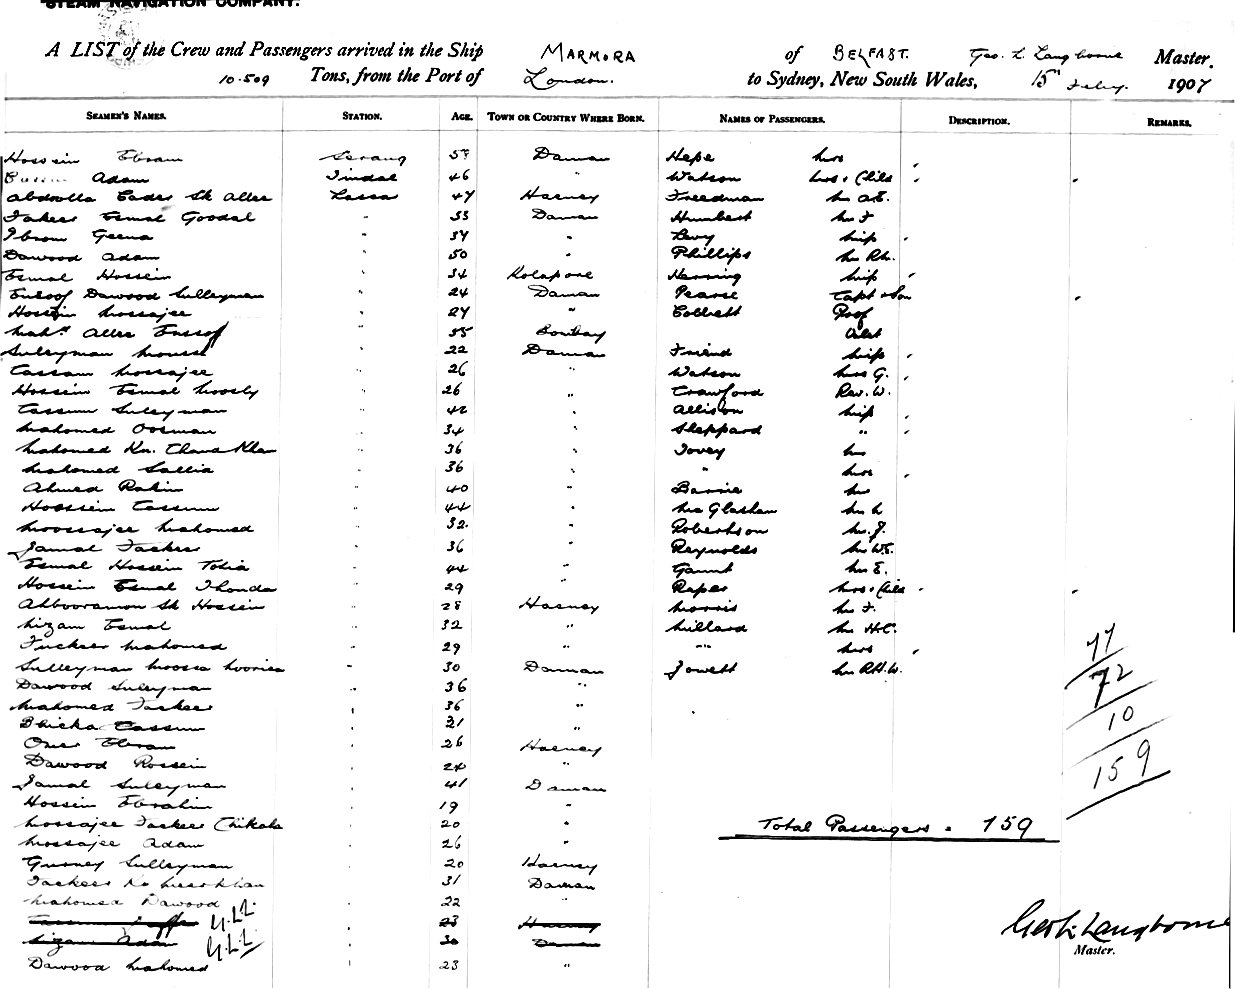 STEAM NAVIGATION COMPANY.
A LIST of the Crew and Passengers arrived in the Ship MARMORA of BELFAST. Geo. L Langborne Master,
10.509 Tons, from the Port of London. to Sydney, New South Wales, 15th Feby. 1907
SEAMEN'S NAMES. STATION. AGE. TOWN OR COUNTRY WHERE BORN. NAMES OF PASSENGERS. DESCRIPTION. REMARKS.
Hossein Ebram Serang 58 Daman Hepe Mrs
Adam Tindal 46 " Watson Mrs & Child
Abdoolla Cader Sk Allee Lascar 47 Harney Freedman Mr A.E.
Fakeer Esmal Goodal " 33 Daman Humbert Mr F
Ebram Geena " 34 " Levy Miss
Dawood Adam " 50 " Phillips Mr Rh.
Esmal Hossein " 34 Kolapore Herring Miss
Eusoof Dawood Sulleyman " 24 Daman Pearse Capt & Son
Hossein Moosajee " 24 " Collett Prof
Mahd. Allee Eussof " 35 Bombay
Suleyman Moosa " 22 Daman Friend Miss
Cassam Moosajee " 26 " Watson Mrs G.
Hossein Esmal Moosly " 26 " Crawford Rev. W.
Cassum Suleyman " 42 " Allison Miss
Mahomed Oosman " 34 " Sheppard "
Mahomed Kn. Chand Khan " 36 " Tovey Mr
Mahomed Sallia " 36 " " Mrs
Ahmed Rahim " 40 " Barrie Mr
Hossein Cassum " 44 " McGlashan Mr L
Moosajee Mahomed " 32 " Robertson Mr J.
Jamal Fackeer " 36 " Reynolds Mr W.E.
Esmal Hossein Tolia " 44 " Gaunt Mr E.
Hossein Esmal " 29 " Raper Mrs & Child
Abbooramon Sk Hossein " 28 Harney Morris Mr F.
Nizam Esmal " 32 " Millard Mr H.C.
Fuckeer Mahomed " 29 " " Mrs
Sulleyman Moosa " 30 Daman Jowett Mr R.H.W.
Dawood Suleyman " 36 "
Mahomed Fackeer " 36 "
Bhicka Cassum " 21 "
Omer Ebram " 26 Harney
Dawood Hossein " 24 "
Jamal Suleyman " 41 Daman
Hossein Ebrahim " 19 "
Moosajee Fackeer Chikala " 20 "
Moosajee Adam " 26 "
Gurney Sulleyman " 20 Harney
Fackeer Kn " 31 Daman
Mahomed Dawood " 22 "
Cassum G.L.L. 23 Harney
Nizam Adam G.L.L 30 Daman
Dawood Mahomed " 23 "
77
72
10
159
Total Passengers = 159
Geo L. Langborne
Master.